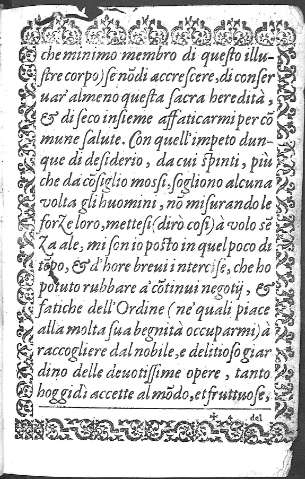 che minimo membro di questo illu-
stre corpo) se nõ di accrescere, di conser
uar' almeno questa sacra heredità,
& di seco insieme affaticarmi per cõ
mune salute. Con quell'impeto dun-
que di desiderio, da cui spinti, più
che da cõsiglio mossi, sogliono alcuna
volta gli huomini, nõ misurando le
forze loro, mettesi (dirò cosi) à volo sẽ
za ale, mi son io posto in quel poco di
tẽpo, & d'hore breui intercise, che ho
potuto rubbare a' cõtinui negotij, &
fatiche dell'Ordine (ne' quali piace
alla molta sua begnità occuparmi) à
raccogliere dal nobile, e delitioso giar
dino delle deuotissime opere, tanto
hoggidì accette al mõdo, et fruttuose,
✠ 4 del